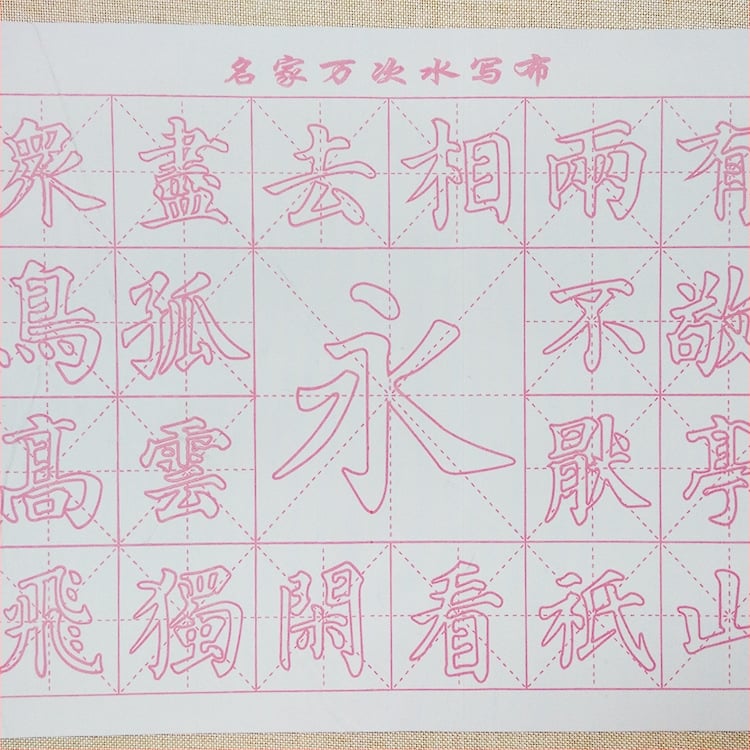 名家万次水写布
眾鳥髙飛
盡孤雲獨
去閑
永
相看
兩不猒祇
有敬亭山